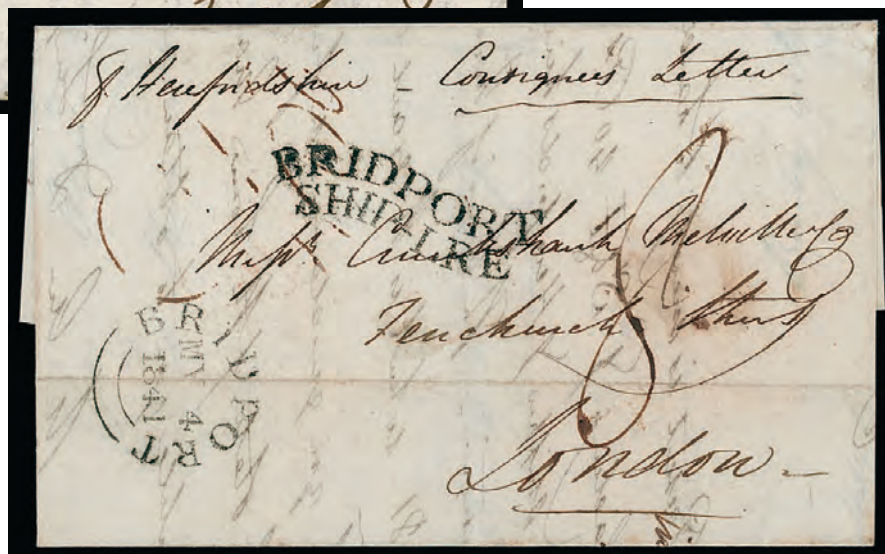 p. Herefordshire - Consignees Letter
BRIDPORT
SHIP-LRE
Messrs. Cruikshank Melville & Co
8
Fenchurch Street
BRIDPORT
MY 4
1841
London